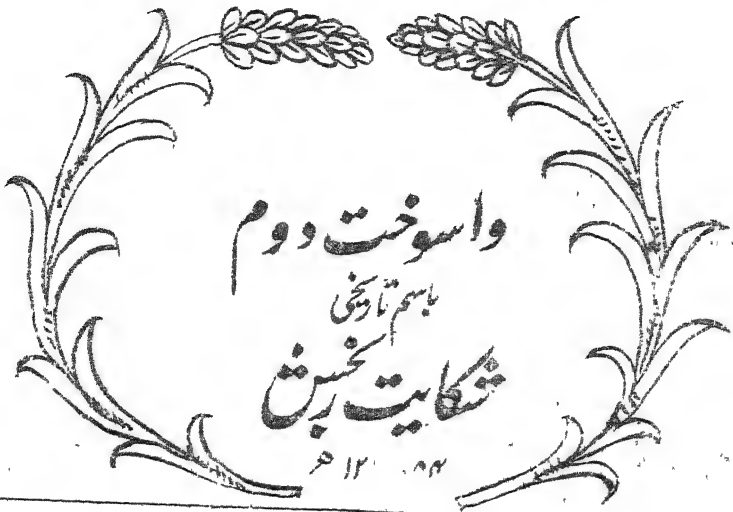 واسوخت دوم
باسم تاریخی
شکایت رنجش
۱۲۸۴ھ